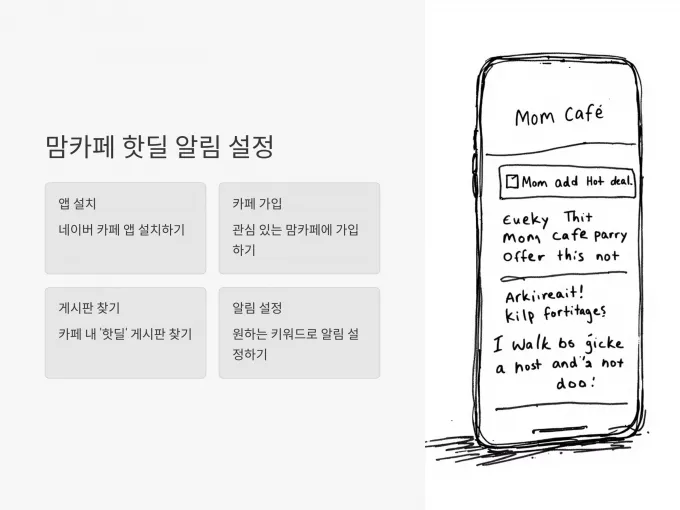 맘카페 핫딜 알림 설정
앱 설치
네이버 카페 앱 설치하기
카페 가입
관심 있는 맘카페에 가입
하기
게시판 찾기
카페 내 '핫딜' 게시판 찾기
알림 설정
원하는 키워드로 알림 설
정하기
Mom Café
Mom add Hot deal.
Eueky Thit
Mom Cafe parry
Offer this not
Arkiireait!
kilp fortitages
I Walk bs gicke
a nost and's not
doo!